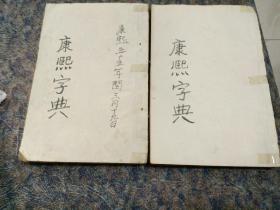 康熙字典
康熙五十五年閏三月十九日
康熙字典